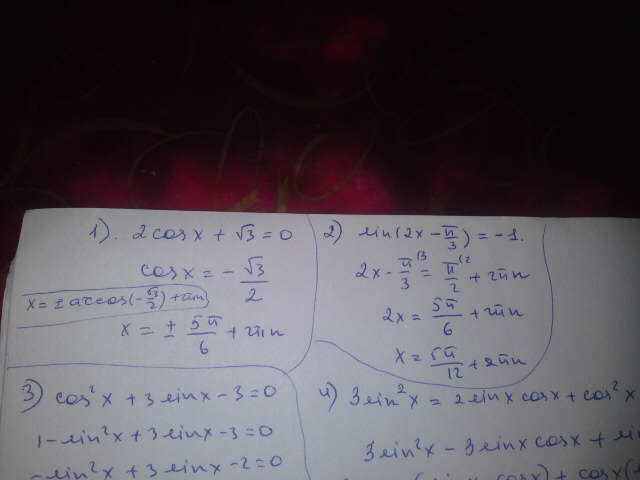 1). 2cosx + √3 = 0
cosx = - √3/2
x = ± arccos(-√3/2) + πn
x = ± 5π/6 + 2πn
2) sin(2x - π/3) = -1.
2x - π/3 = π/2 + 2πn
2x = 5π/6 + 2πn
x = 5π/12 + 2πn
3) cos²x + 3sinx - 3 = 0
1 - sin²x + 3sinx - 3 = 0
-sin²x + 3sinx - 2 = 0
4) 3sin²x = 2sinx cosx + cos²x
3sin²x - 3sinx cosx + sin